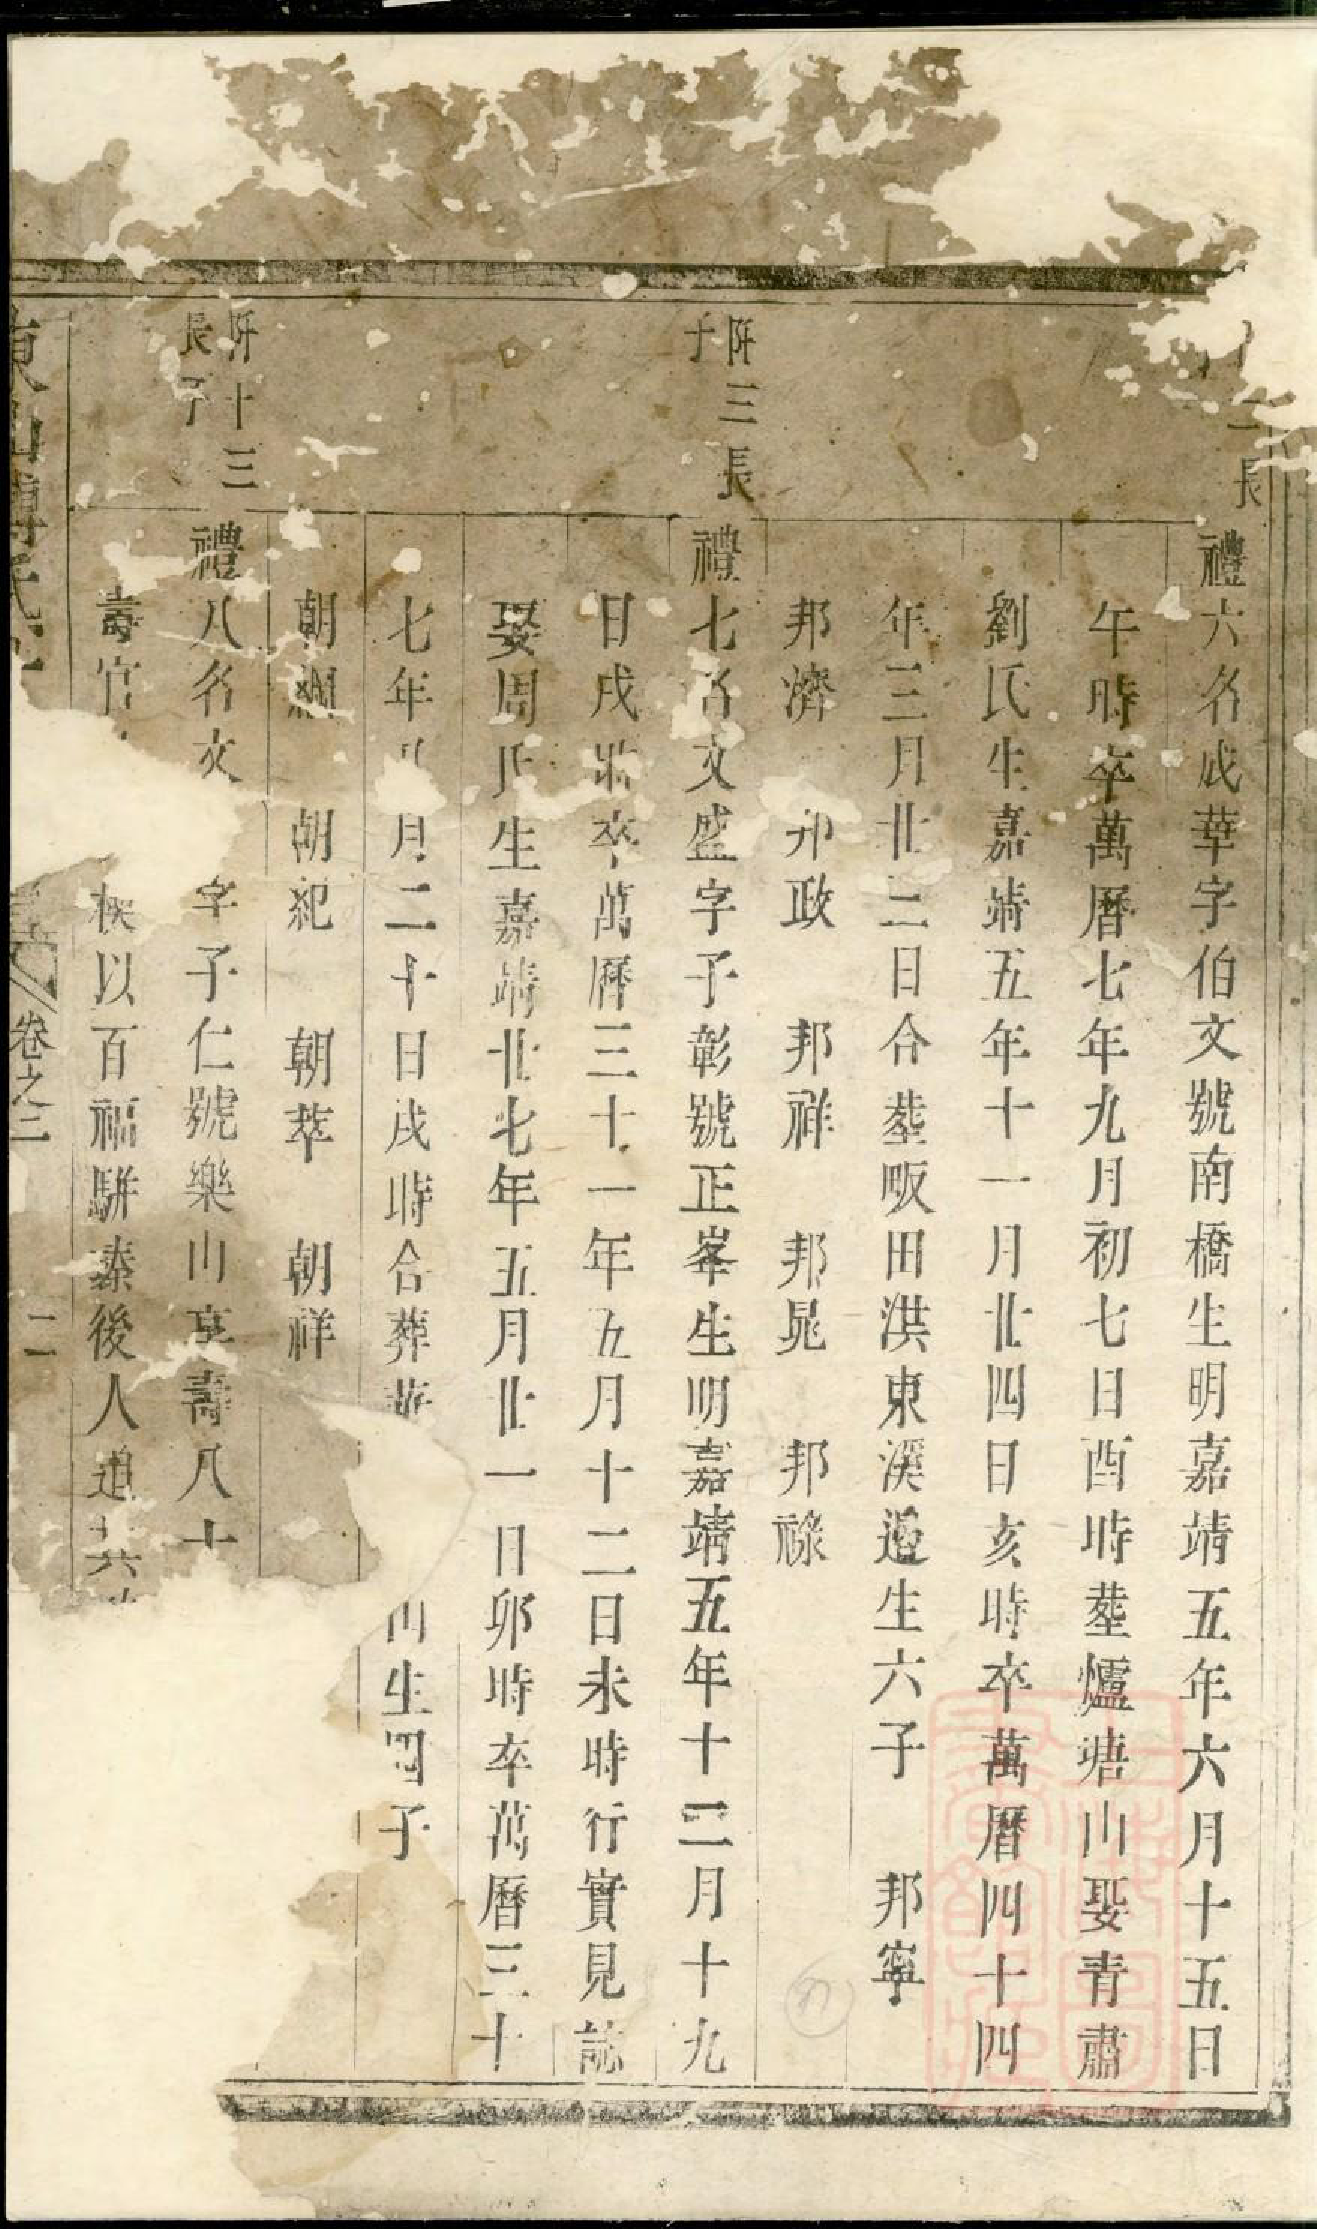 二長
禮六名成華字伯文號南橋生明嘉靖五年六月十五日
午時卒萬曆七年九月初七日酉時塟爐塘山娶青肅
劉氏生嘉靖五年十一月廿四日亥時卒萬曆四十四
年三月廿二日合塟畈田洪東溪邉生六子 邦寧
邦濟 邦政 邦祥 邦晃 邦祿
阩三長
子
禮七名文盛字子彰號正峯生明嘉靖五年十二月十九
日戌時卒萬曆三十一年五月十二日未時行實見誌
娶周氏生嘉靖廿七年五月廿一日卯時卒萬曆三十
七年 月二十日戌時合葬 山生四子
朝綱 朝紀 朝萃 朝祥
阩十三
長子
禮八名文 字子仁號樂山享壽八十
壽官 以百福駢臻後人追其
東 傅氏
卷之三
二